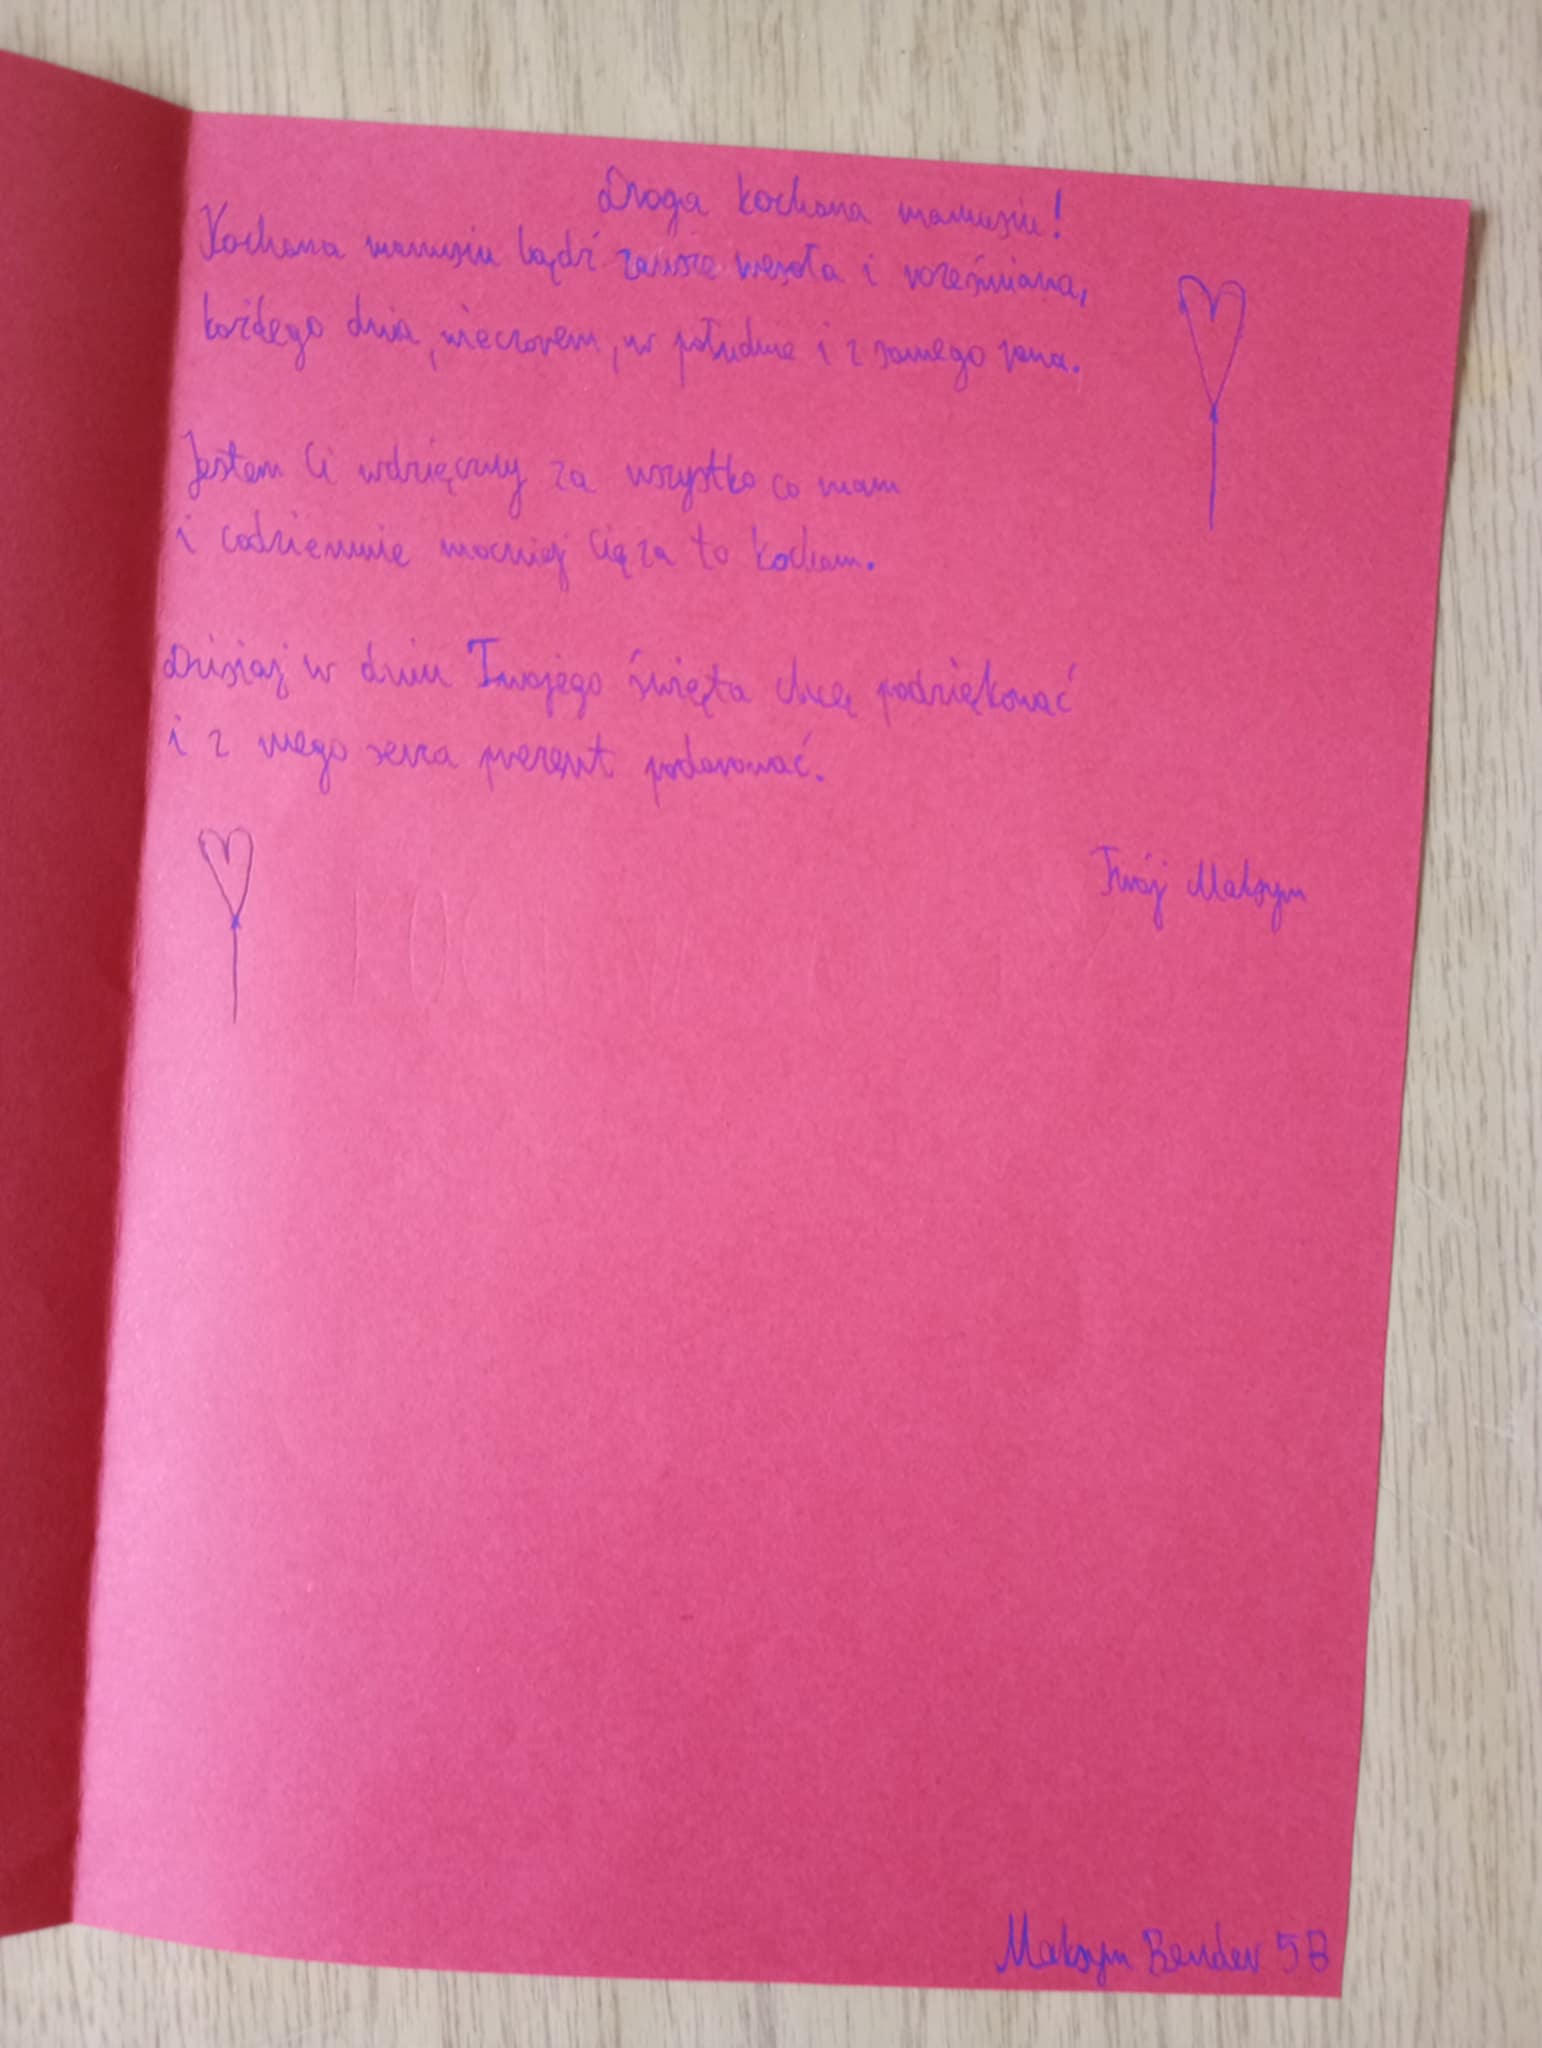 Droga kochana mamusiu!
Kochana mamusiu bądź zawsze wesoła i uśmiana,
każdego dnia, wieczorem, w południe i z samego rana.
Jestem Ci wdzięczny za wszystko co mam
i codziennie mocniej Cię za to kocham.
Dzisiaj w dniu Twojego święta chcę podziękować
i z mego serca prezent podarować.
Twój Maksym
Maksym Bender 5B